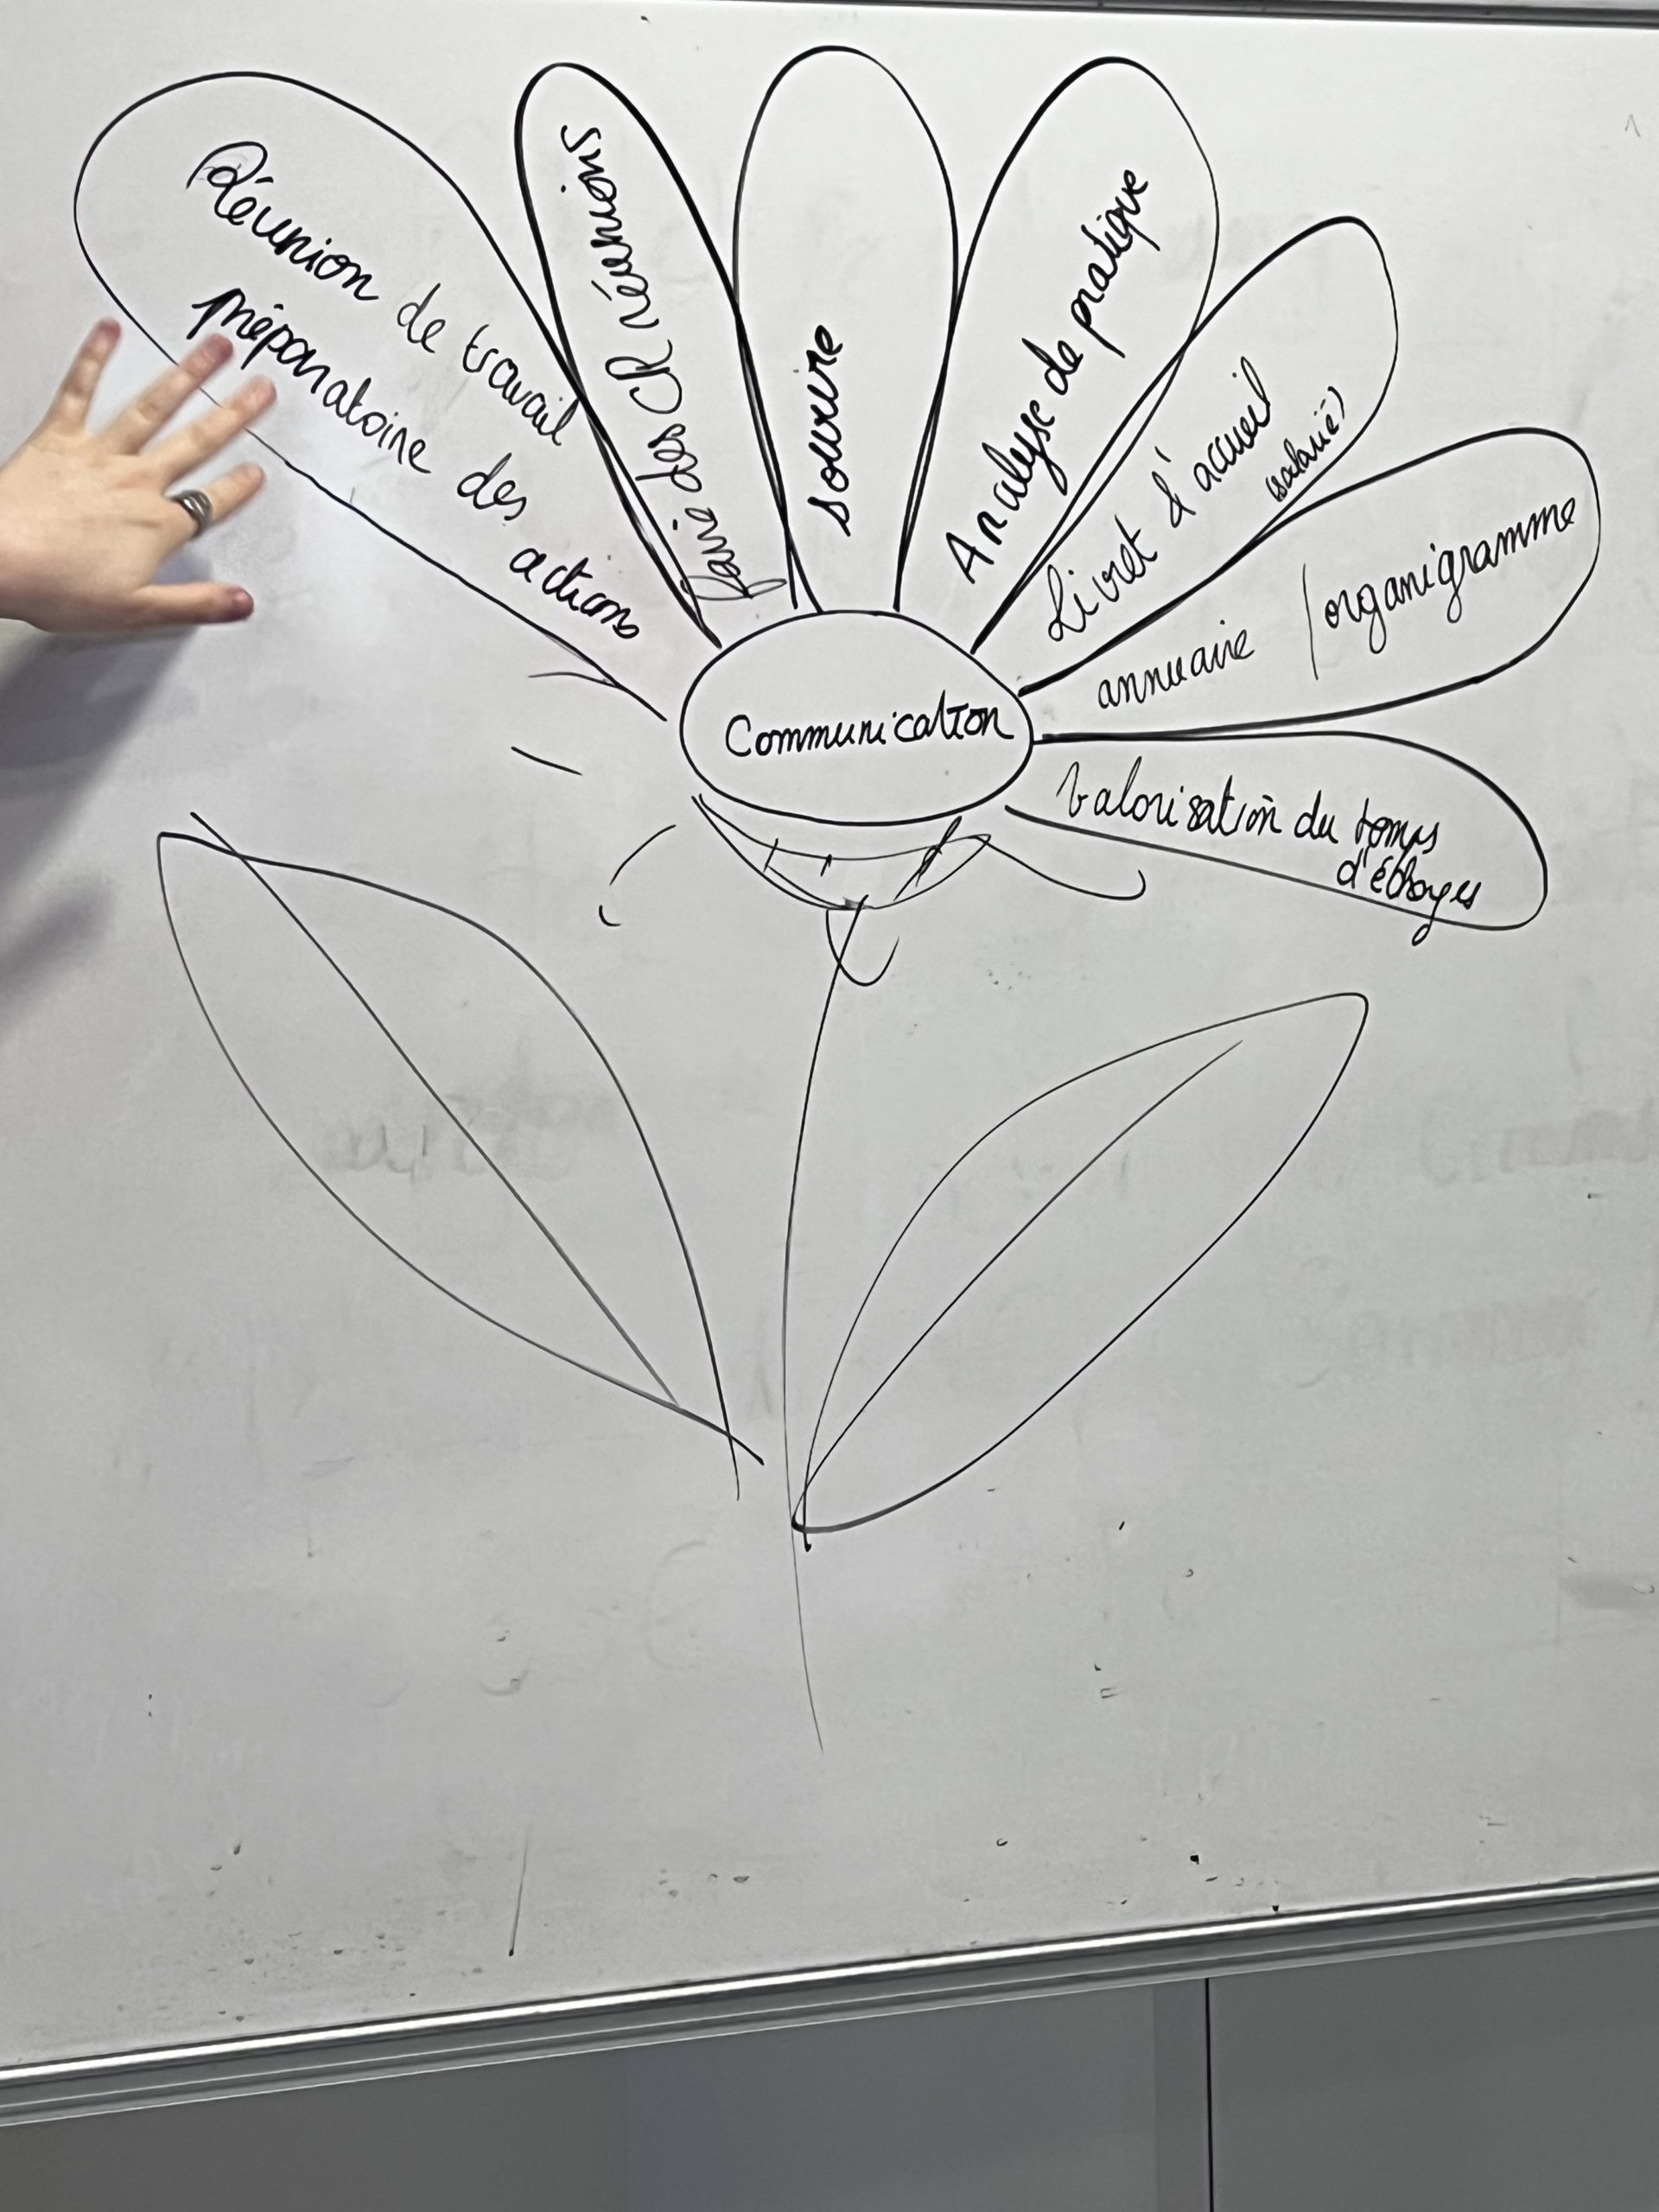 Réunion de travail
préparatoire des actions
faire des CR réunions
sourire
Analyse de pratique
Livret d'accueil
(salarié)
annuaire / organigramme
Communication
Valorisation du temps
d'échanges